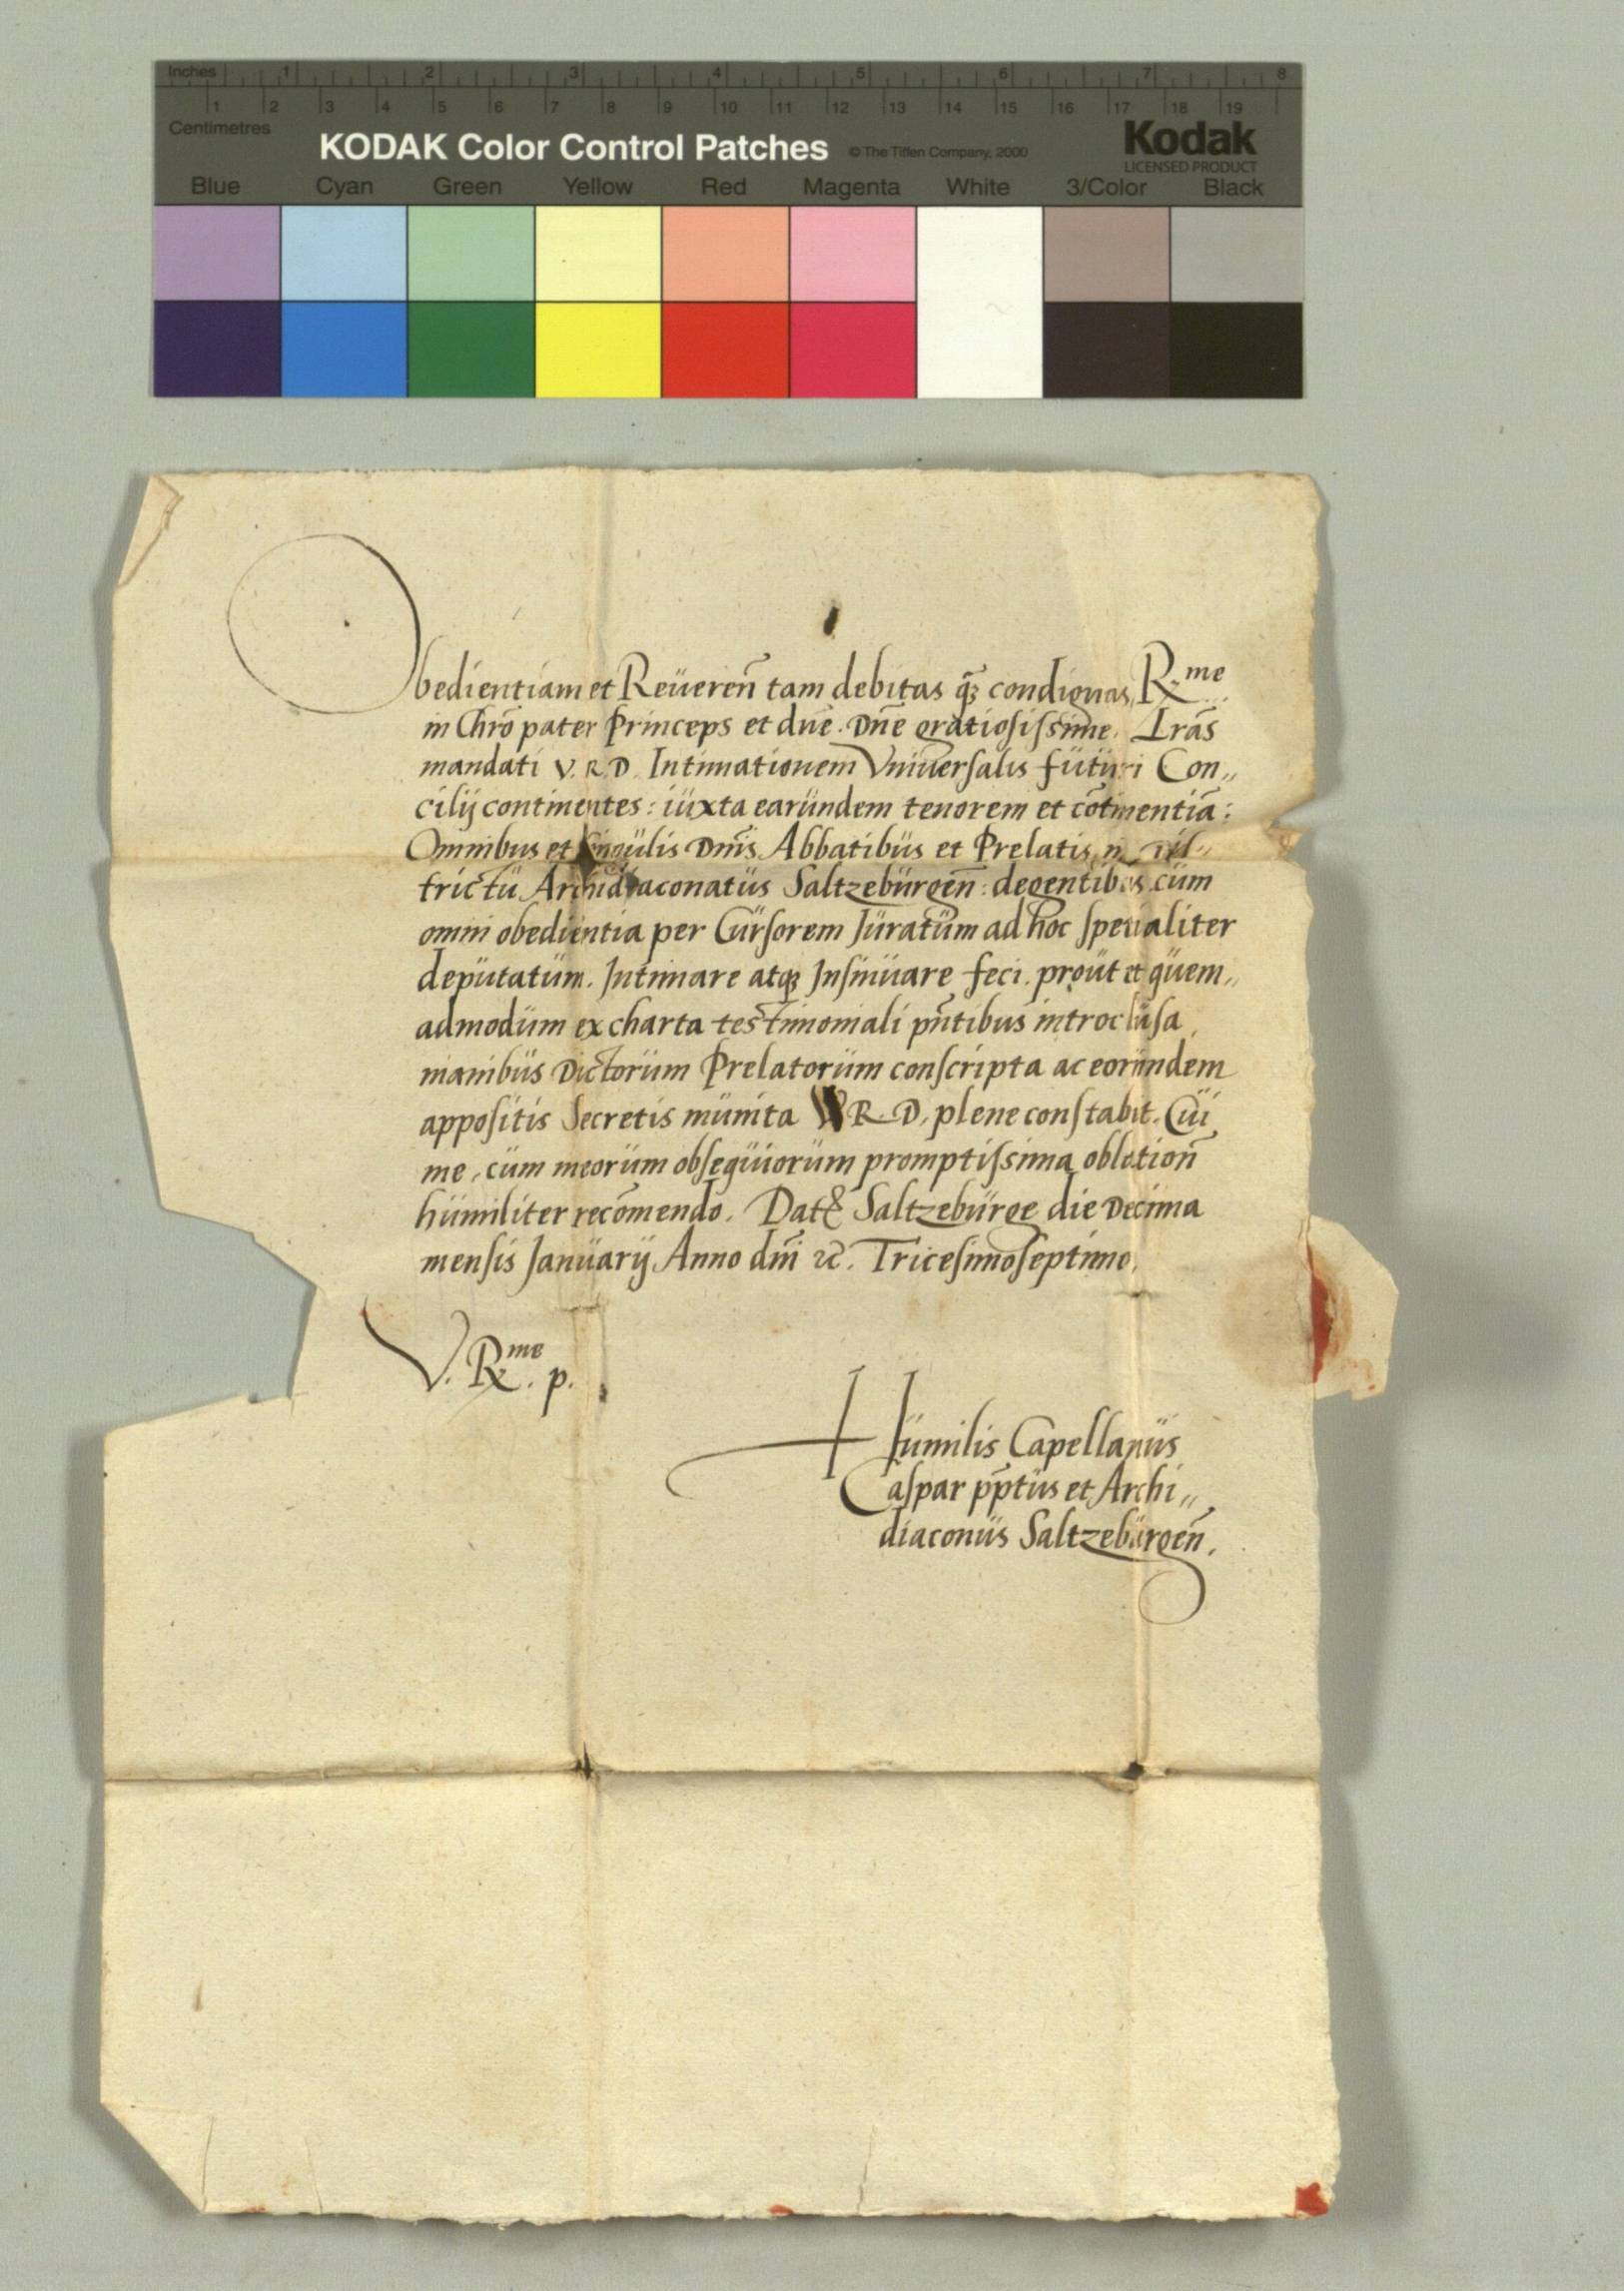 Inches 1 2 3 4 5 6 7 8
1 2 3 4 5 6 7 8 9 10 11 12 13 14 15 16 17 18 19
Centimetres
KODAK Color Control Patches © The Tiffen Company, 2000 Kodak
LICENSED PRODUCT
Blue Cyan Green Yellow Red Magenta White 3/Color Black
Obedientiam et Reüereñ tam debitas q̃ꝫ condignas, R.me
in Chr̄o pater Princeps et dn̄e. Dn̄e gratiosissime. Lr̄as
mandati V. R. D. Intimationem Vniüersalis fütüri Con„
cilij continentes: iüxta earündem tenorem et cōtinentiā:
Omnibus et singülis Dn̄is Abbatibüs et Prelatis in
trictü Archidiaconatüs Saltzebürgen̄: degentibus cüm
omni obedientia per Cürsorem Jüratüm ad hoc specialiter
depütatüm. Intimare atqꝫ Insinüare feci. proüt et qüem„
admodüm ex charta testimoniali pn̄tibus introclüsa,
manibüs Dictorüm Prelatorüm conscripta ac eoründem
appositis Secretis münita V. R. D. plene constabit. Cüi
me, cüm meorüm obseqüiorüm promptissima oblation̄
hümiliter recōmendo. Datꝭ Saltzebürge die Decima
mensis Janüarij Anno dn̄i ꝛc̄. Tricesimoseptimo.
V. R.me p.
Hümilis Capellanüs
Caspar pp̄tüs et Archi„
diaconüs Saltzebürgen̄.